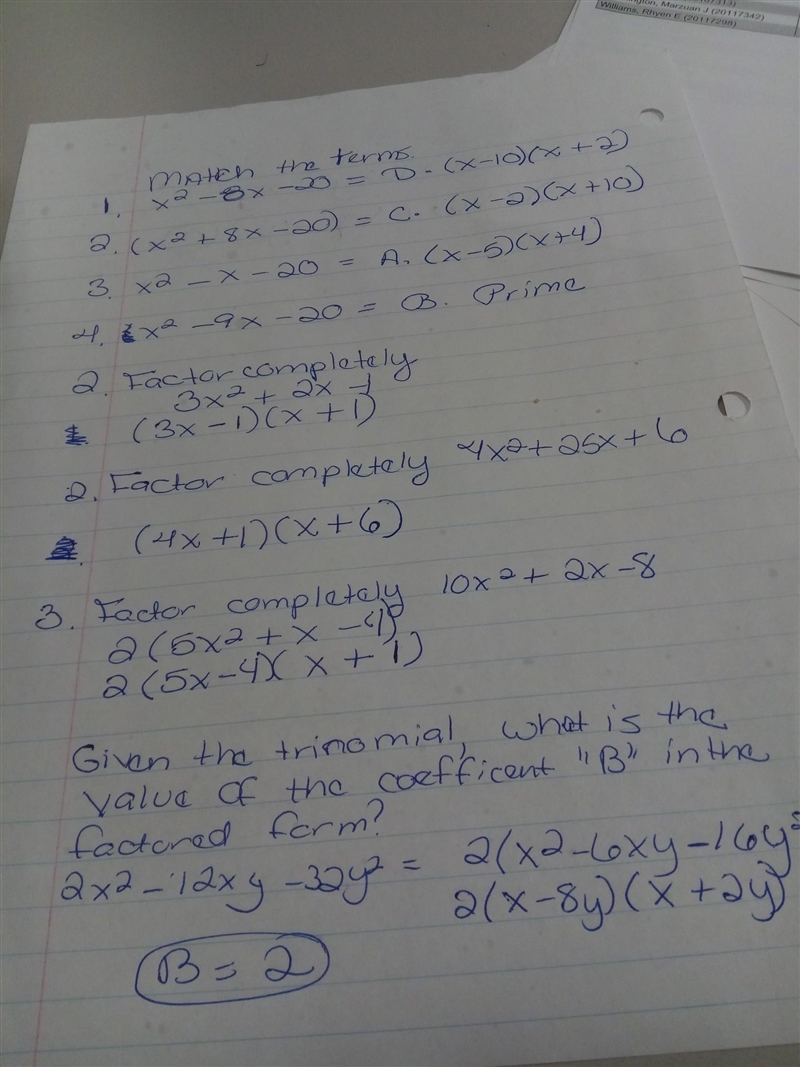 Marzuan J (20117342)
Williams, Rhyen E (20117298)
Match the terms.
1. x² - 8x - 20 = D. (x-10)(x+2)
2. (x² + 8x - 20) = C. (x-2)(x+10)
3. x² - x - 20 = A. (x-5)(x+4)
4. x² - 9x - 20 = B. Prime
2. Factor completely
3x² + 2x - 1
(3x - 1)(x + 1)
2. Factor completely 4x² + 25x + 6
(4x + 1)(x + 6)
3. Factor completely 10x² + 2x - 8
2(5x² + x - 4)
2(5x - 4)(x + 1)
Given the trinomial, what is the
value of the coefficent "B" in the
factored form?
2x² - 12xy - 32y² = 2(x2 - 6xy - 16y²
2(x - 8y)(x + 2y)
B = 2